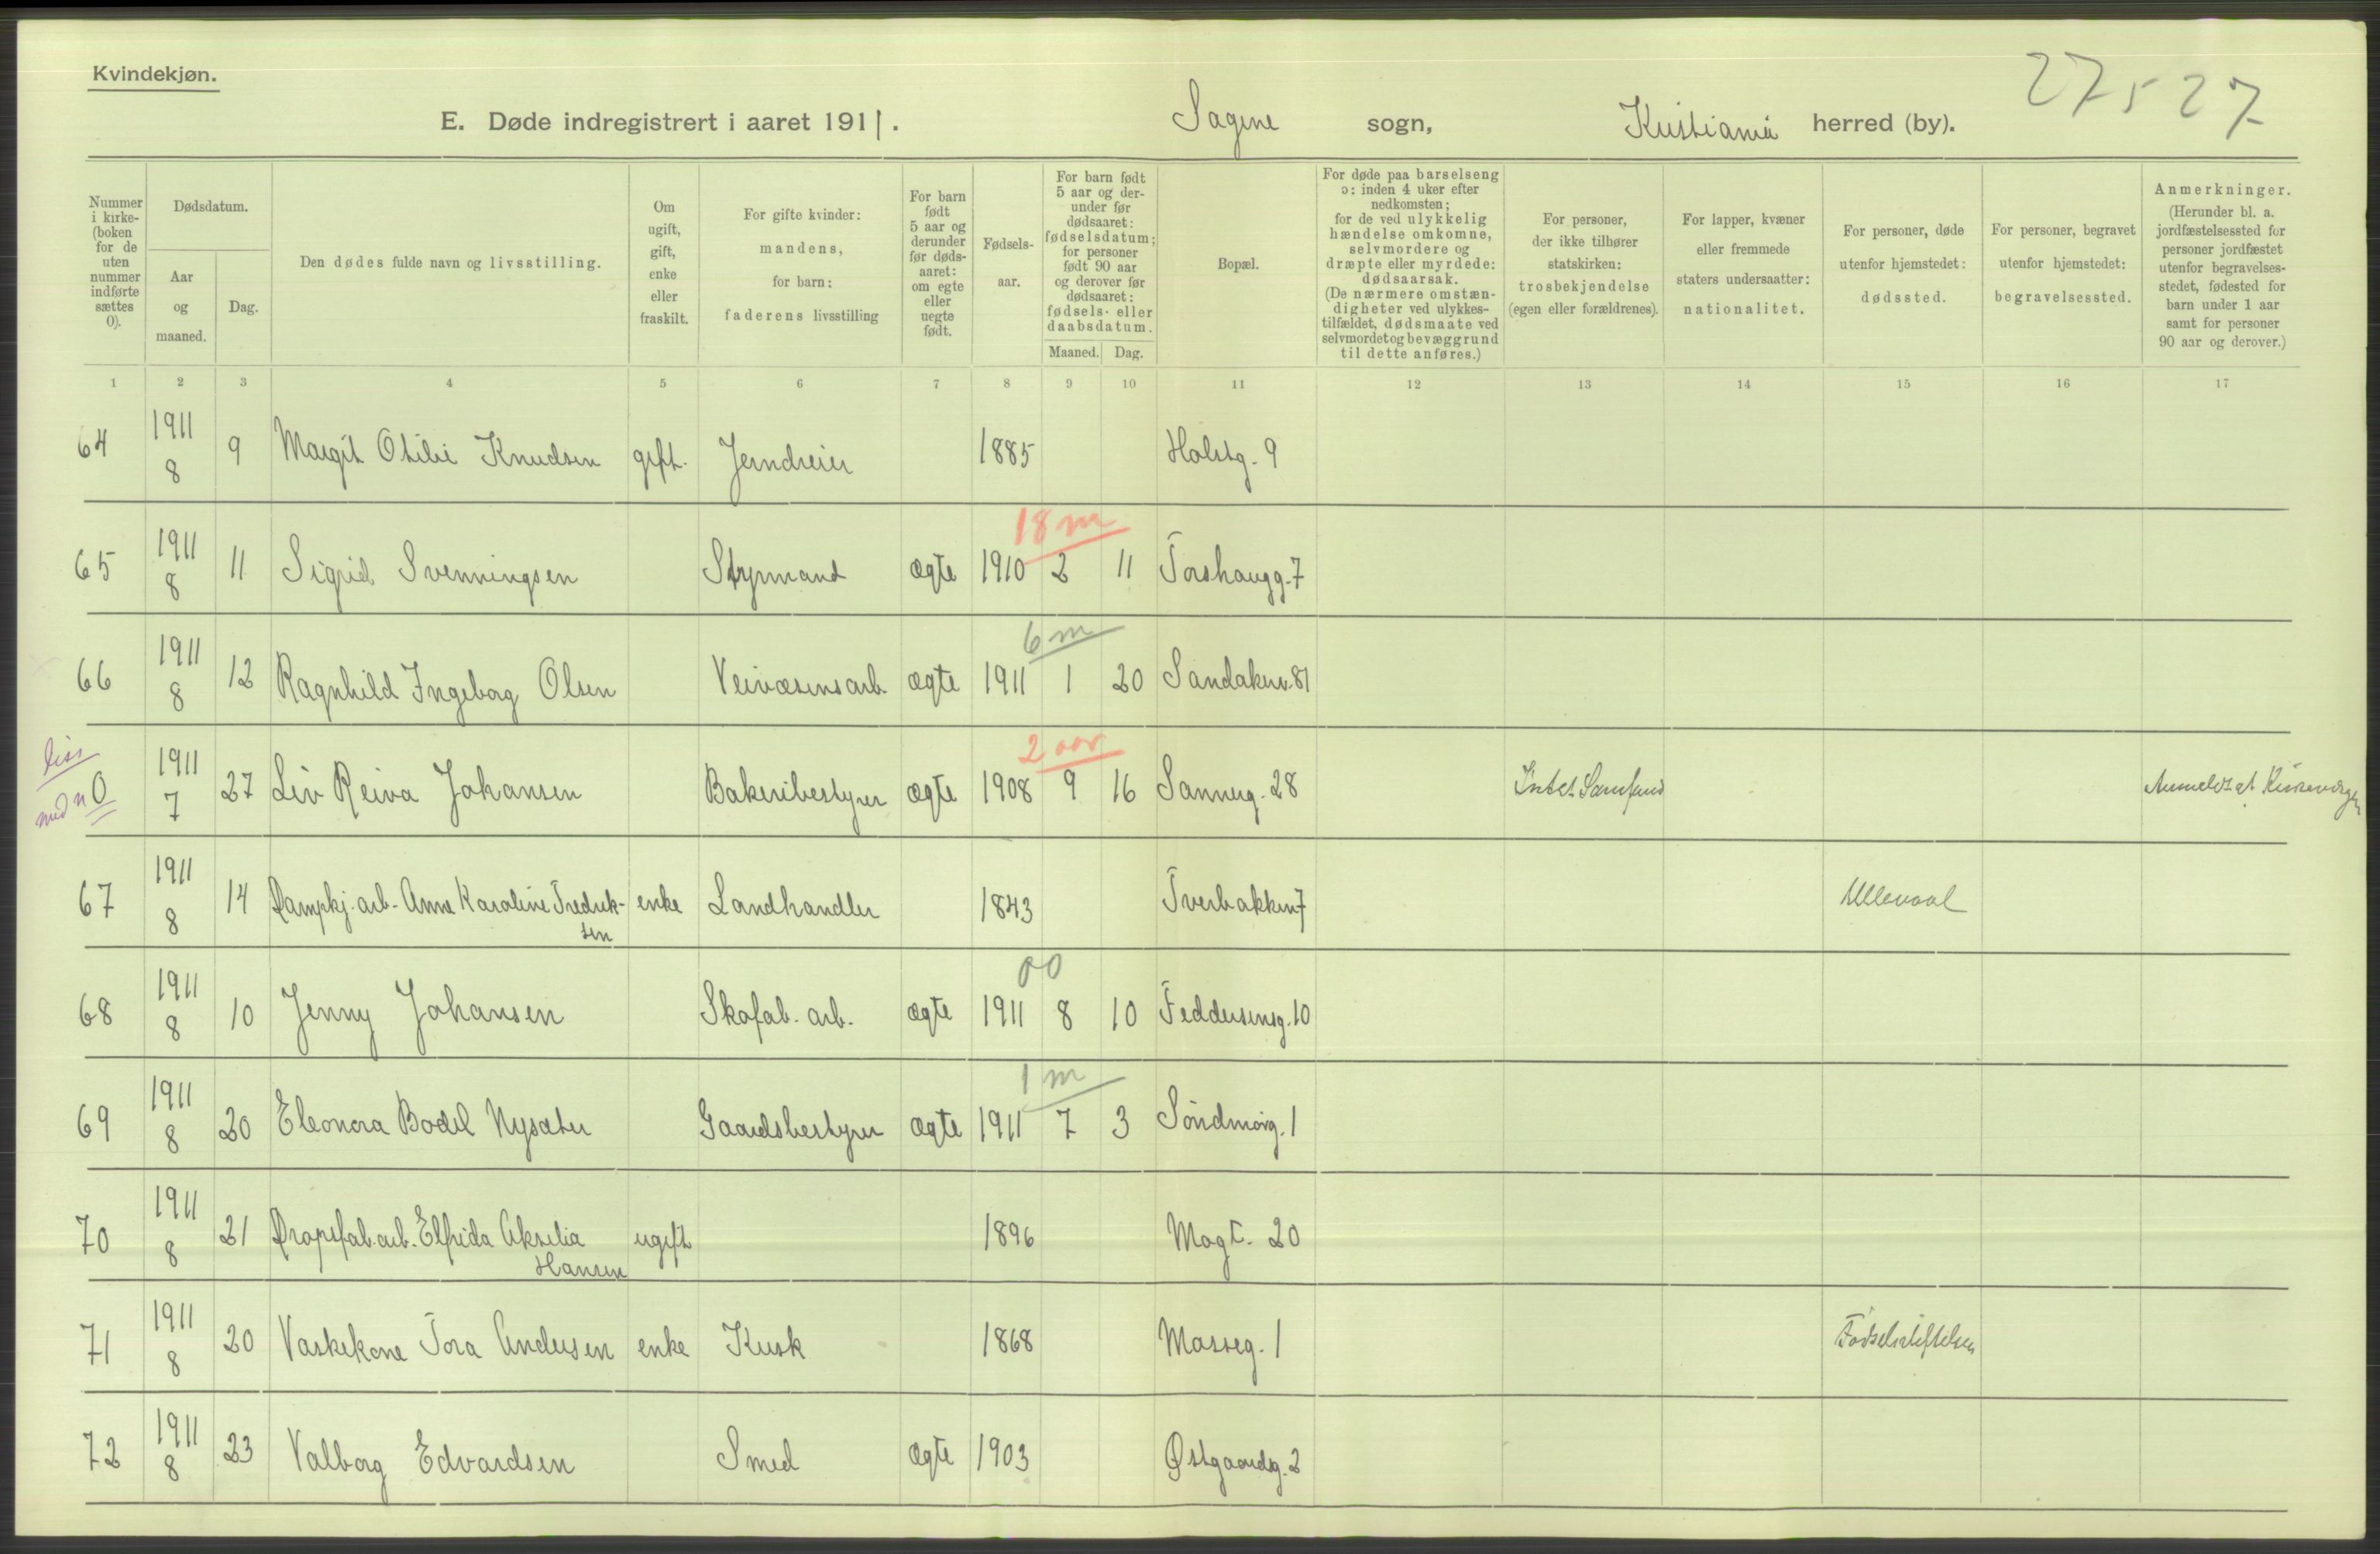 Kvindekjøn.
27527
E. Døde indregistrert i aaret 1911. Sagene sogn, Kristiania herred (by).
Nummer i kirke- (boken for de uten nummer indførte sættes 0).
Dødsdatum.
Aar og maaned.
Dag.
Den dødes fulde navn og livsstilling.
Om ugift, gift, enke eller fraskilt.
For gifte kvinder: mandens, for barn: faderens livsstilling
For barn født 5 aar og derunder før døds- aaret: om egte eller uegte født.
Fødsels- aar.
For barn født 5 aar og der- under før dødsaaret: fødselsdatum; for personer født 90 aar og derover før dødsaaret: fødsels- eller daabsdatum.
Maaned. Dag.
Bopæl.
For døde paa barselseng ɔ: inden 4 uker efter nedkomsten; for de ved ulykkelig hændelse omkomne, selvmordere og dræpte eller myrdede: dødsaarsak. (De nærmere omstæn- digheter ved ulykkes- tilfældet, dødsmaate ved selvmordet og bevæggrund til dette anføres.)
For personer, der ikke tilhører statskirken: trosbekjendelse (egen eller forældrenes).
For lapper, kvæner eller fremmede staters undersaatter: nationalitet.
For personer, døde utenfor hjemstedet: dødssted.
For personer, begravet utenfor hjemstedet: begravelsessted.
Anmerkninger. (Herunder bl. a. jordfæstelsessted for personer jordfæstet utenfor begravelses- stedet, fødested for barn under 1 aar samt for personer 90 aar og derover.)
1 2 3 4 5 6 7 8 9 10 11 12 13 14 15 16 17
64 1911 8 9 Margit Otilie Knudsen gift. Jerndreier 1885 Holstg. 9
18 m
65 1911 8 11 Sigrid Svenningsen Styrmand ægte 1910 2 11 Torshaugg. 7
6 m
66 1911 8 12 Ragnhild Ingeborg Olsen Veivæsensarb. ægte 1911 1 20 Sandakerv. 81
2 aar
0 1911 7 27 Liv Reiva Johansen Bakeribestyrer ægte 1908 9 16 Sanneg. 28 Intet Samfund Anmeldt at Kirkevergen
67 1911 8 14 Dampkj. arb. Anne Karoline Fredrik- enke Landhandler 1843 Tverbakken 7 Ullevaal
sen
00
68 1911 8 10 Jenny Johansen Skofab. arb. ægte 1911 8 10 Feddersensg. 10
1 m
69 1911 8 20 Eleonora Bodil Nysæter Gaardsbestyrer ægte 1911 7 3 Søndmørg. 1
70 1911 8 21 Dropsfab. arb. Elfrida Akselia ugift 1896 Mogt. 20
Hansen
71 1911 8 20 Vaskekone Tora Andersen enke Kusk 1868 Masseg. 1 Fødselsstiftelsen
72 1911 8 23 Valborg Edvardsen Smed ægte 1903 Østgaardsg. 2